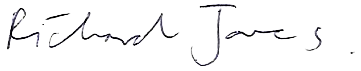 Richard Jones.